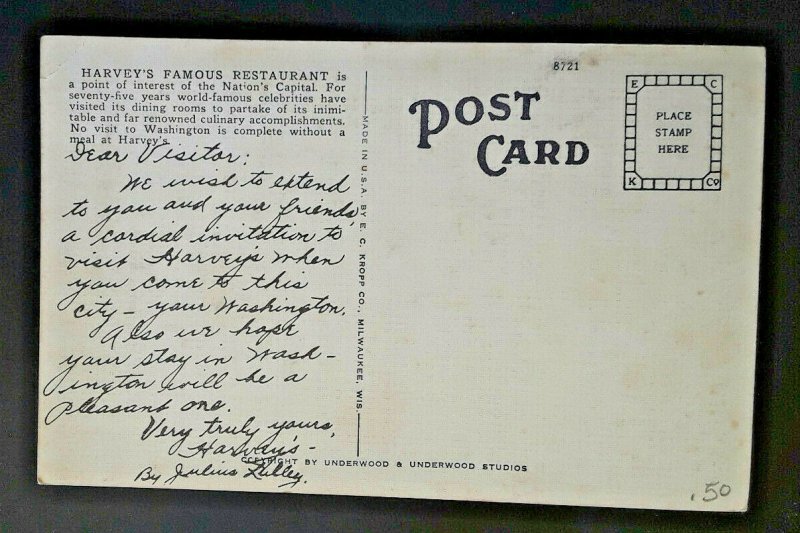 HARVEY'S FAMOUS RESTAURANT is
a point of interest of the Nation's Capital. For
seventy-five years world-famous celebrities have
visited its dining rooms to partake of its inimi-
table and far renowned culinary accomplishments.
No visit to Washington is complete without a
meal at Harvey's.
Dear Visitor:
We wish to extend
to you and your friends,
a cordial invitation to
visit Harvey's when
you come to this
city - your Washington.
Also we hope
your stay in Wash-
ington will be a
pleasant one.
Very truly yours,
Harvey's -
By Julius Lulley.
MADE IN U.S.A. BY E. C. KROPP CO., MILWAUKEE, WIS.
COPYRIGHT BY UNDERWOOD & UNDERWOOD STUDIOS
8721
POST
CARD
E C
PLACE
STAMP
HERE
K Co
.50